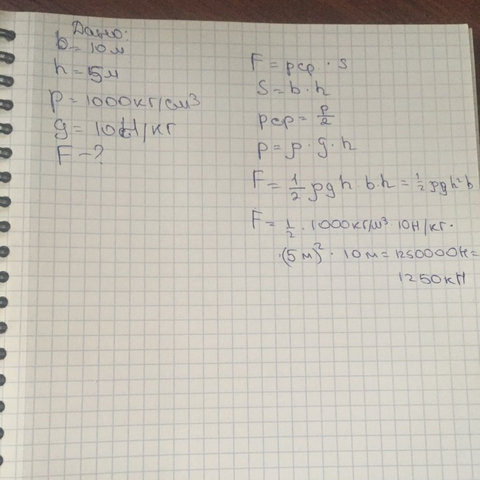 Дано:
b = 10 м
h = 5 м
ρ = 1000 кг/см³
g = 10 Н/кг
F - ?
F = pср · S
S = b · h
pср = p/2
p = ρ · g · h
F = 1/2 ρgh · b · h = 1/2 ρgh²b
F = 1/2 · 1000 кг/м³ · 10 Н/кг ·
· (5 м)² · 10 м = 1250000 Н =
1250 кН